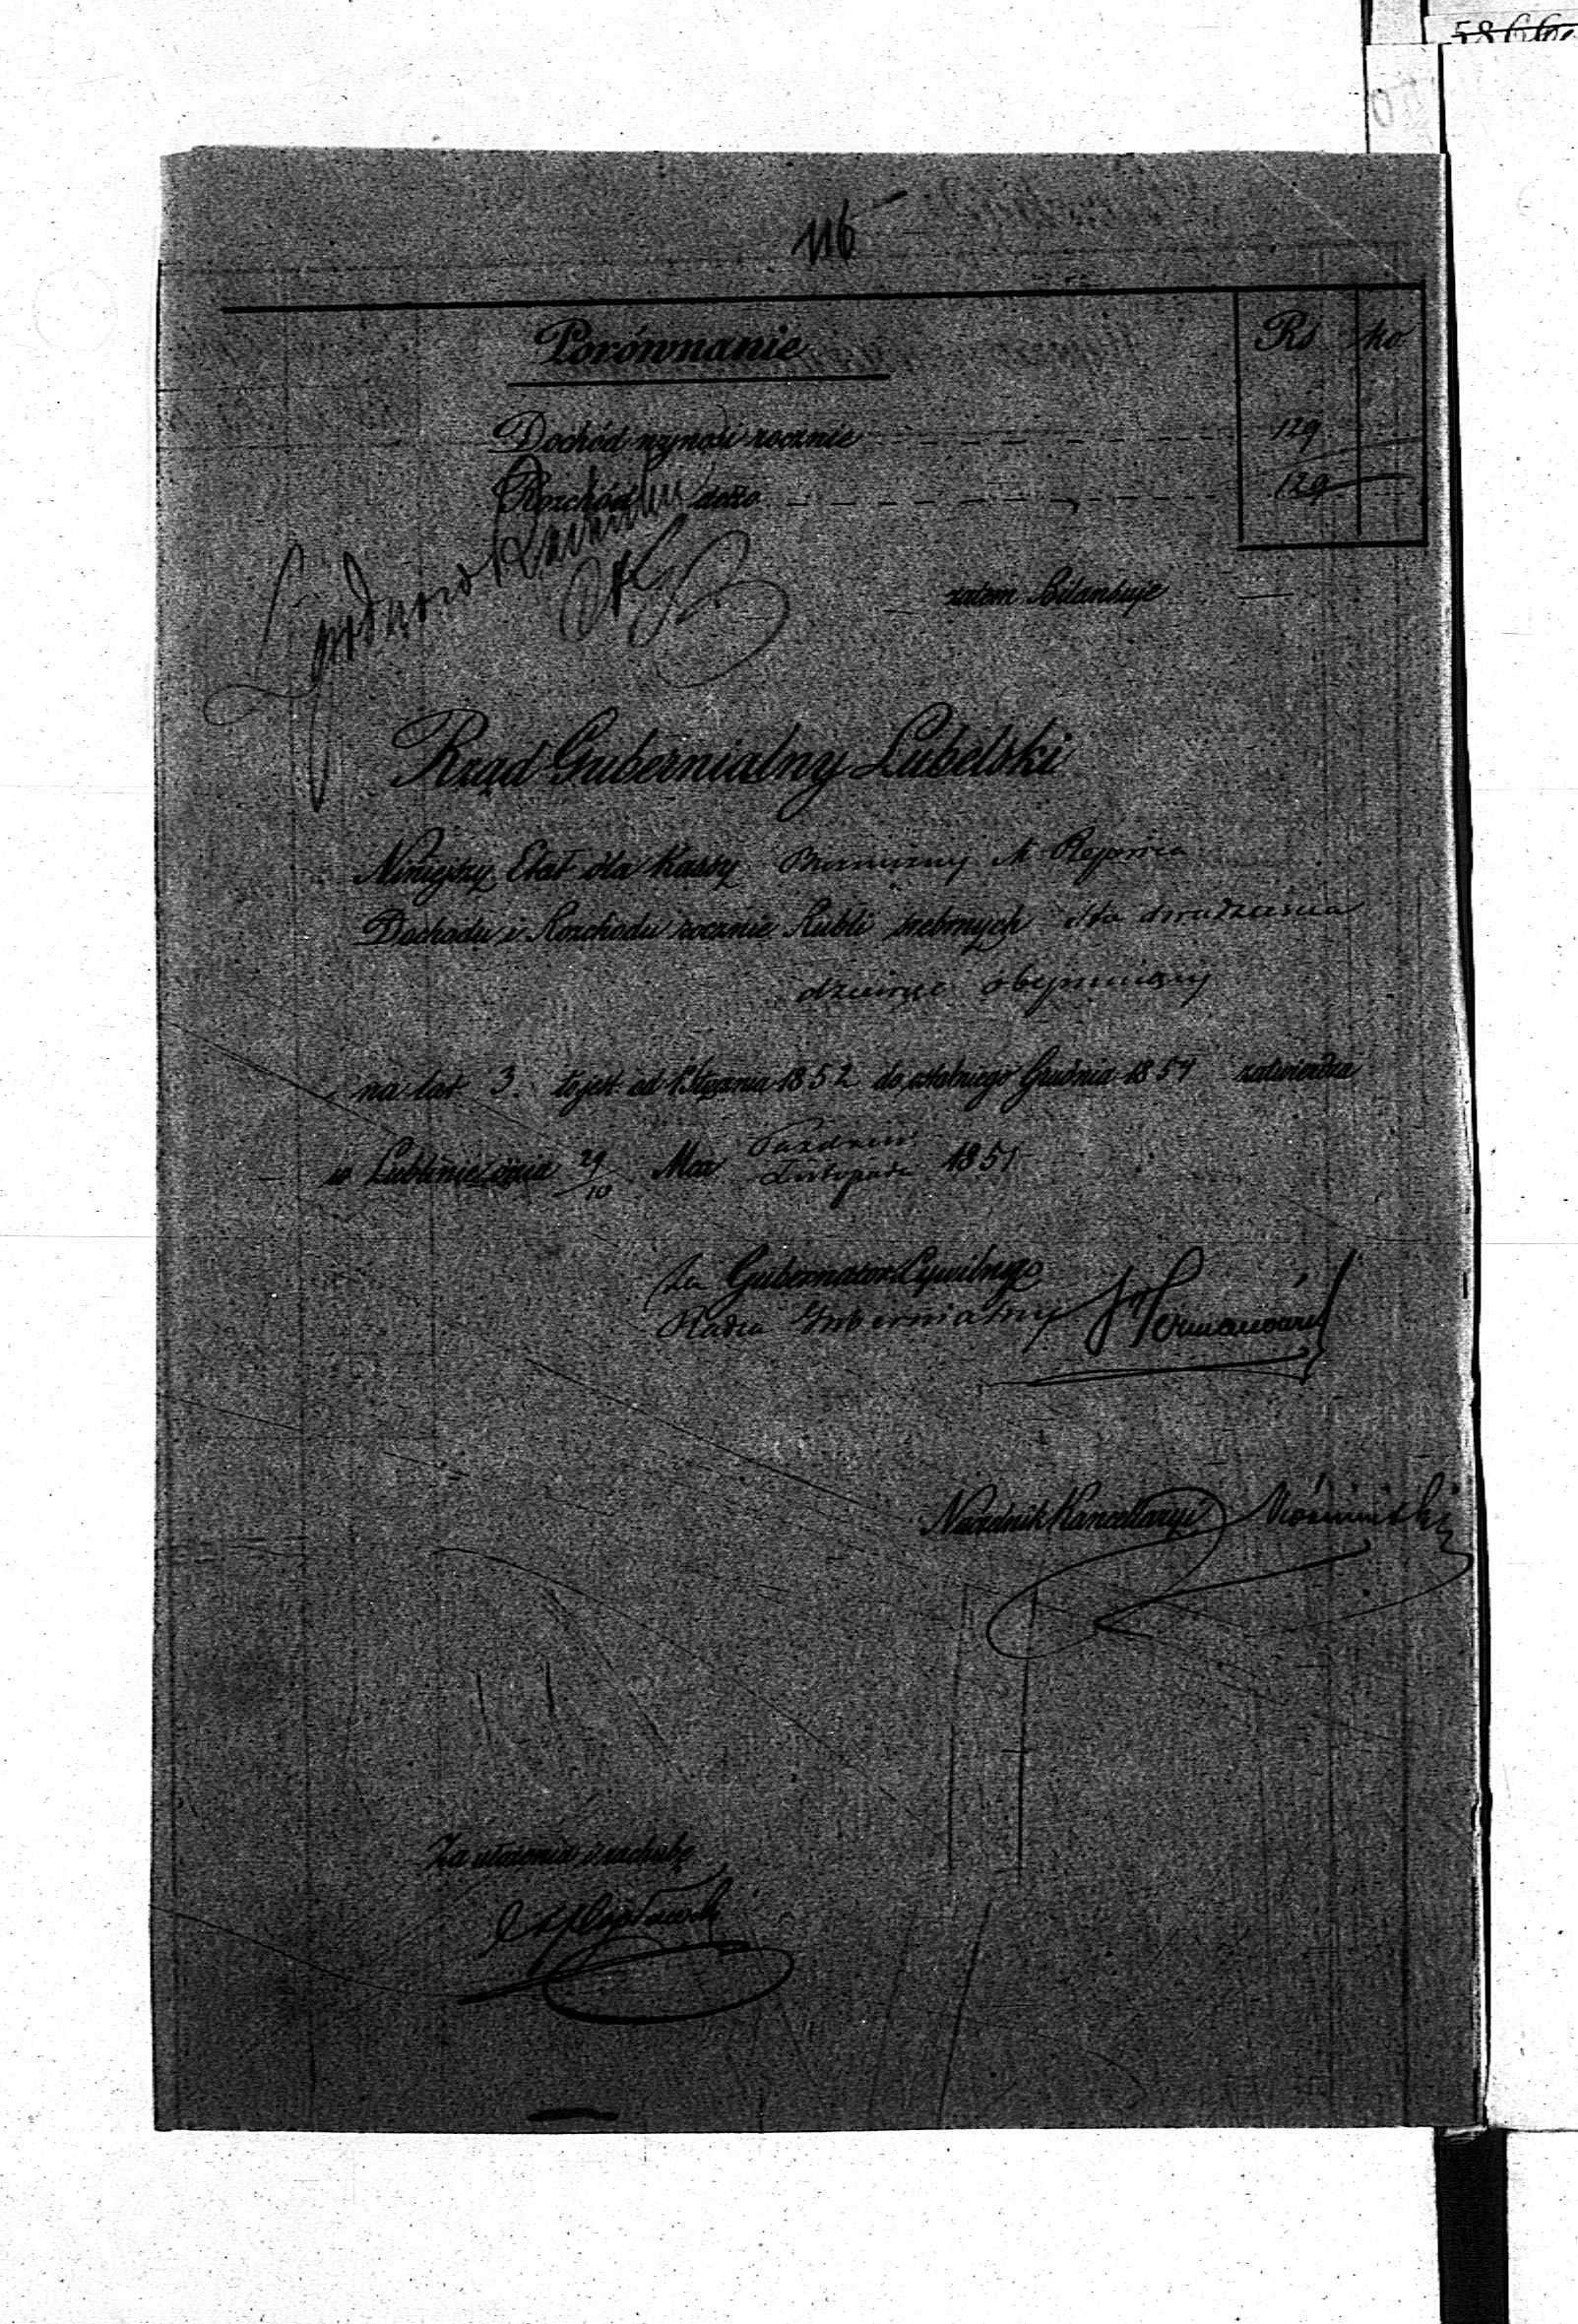 5866
116
Porównanie
Rs ko
Dochód wynosi rocznie 129
Rozchód dtto 129
zatem Bilansuje
Rząd Gubernialny Lubelski
Niniejszy Etat dla Kassy Bóżniczny M Rejowca
Dochodu i Rozchodu rocznie Rubli srebrnych sto dwadzieścia
dziewięć obejmujący
na lat 3. to jest od 1 Stycznia 1852 do ostatniego Grudnia 1854 zatwierdza
w Lublinie dnia 29/10 Mca Paździer/Listopada 1851
Za Gubernatora Cywilnego
Radca Gubernialny
Naczelnik Kancellaryi
Za ułożenie i rachubę